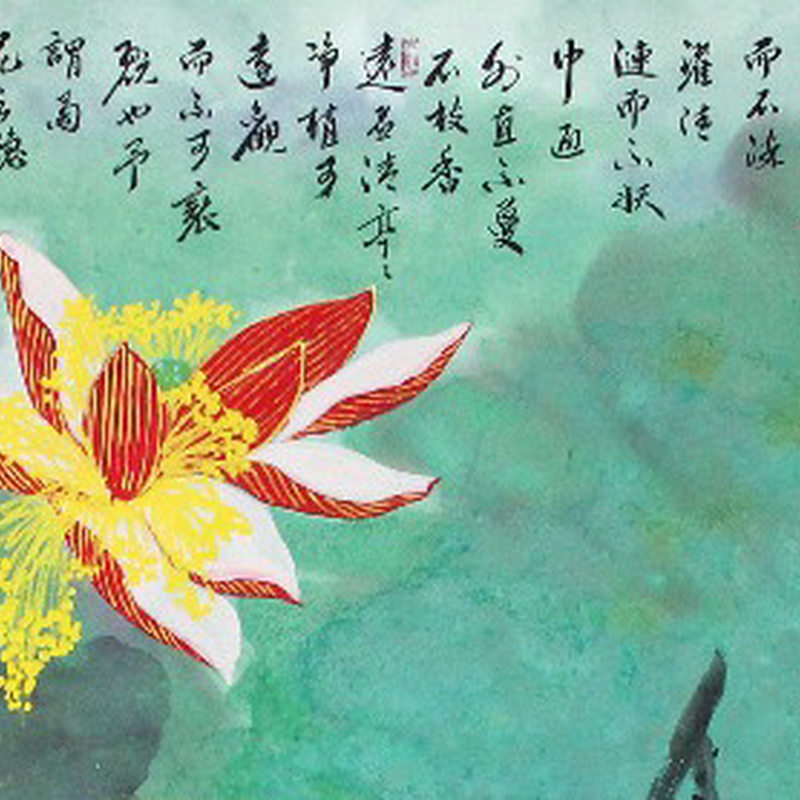 而不染
濯清
漣而不妖
中通
外直不蔓
不枝香
遠益清亭〻
淨植可
遠觀
而不可褻
翫也予
謂菊